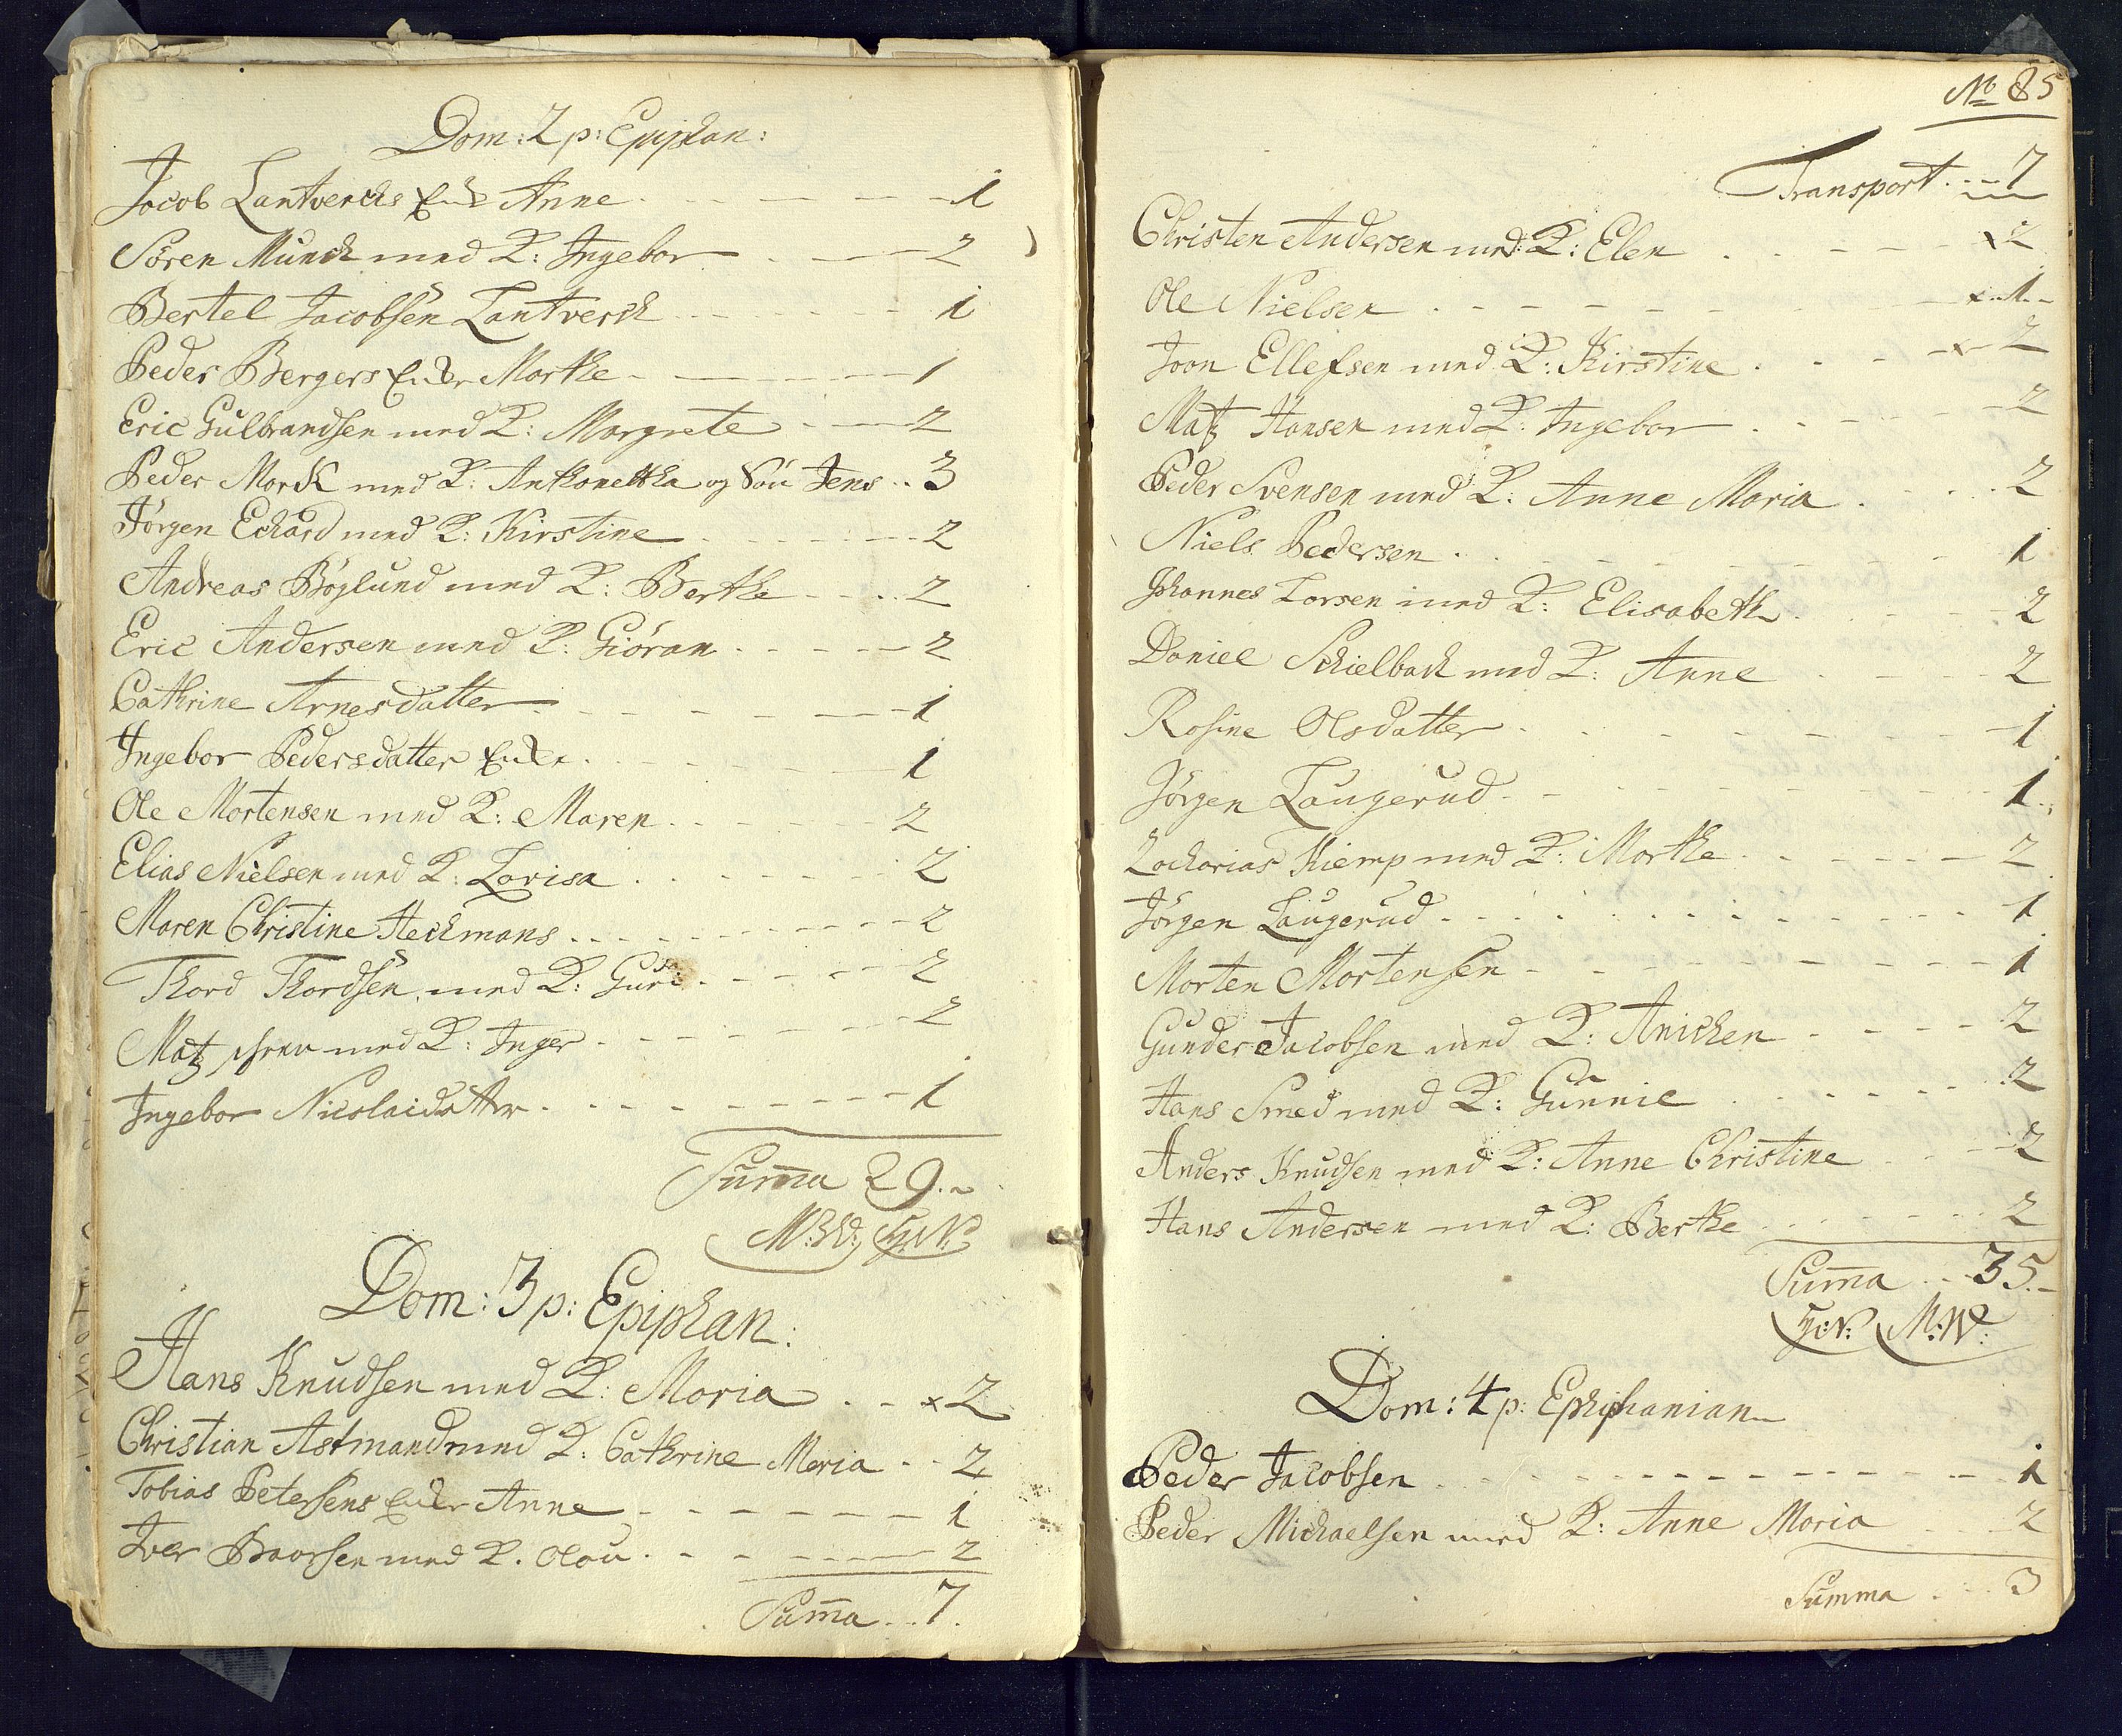 Dom: 2 p: Epiphan:
Jacob Lantverchs Enke Anne - - - - - 1
Sören Munch med K: Ingebor - - - 2
Bertel Jacobsen Lantverch - - - - 1
Peder Bergers Enke Marthe - - - - 1
Eric Gulbrandsen med K: Margrete - - 2
Peder Mork med K: Anthonettha og Sön Jens - - 3
Jörgen Echard med K: Kirstine - - - - 2
Andreas Böglund med K: Berthe - - - 2
Eric Andersen med K: Giöran - - - - 2
Cathrine Arnesdatter - - - - - 1
Ingebor Pedersdatter Enke - - - - - 1
Ole Mortensen med K: Maren - - - - 2
Elias Nielsen med K: Lovisa - - - - 2
Maren Christine Heckmans - - - - 2
Thord Thordsen med K: Guri - - - - 2
Matz med K: Inger - - - - 2
Ingebor Nicolaidatter - - - - - 1
Suma 29.
Dom: 3 p: Epiphan:
Hans Knudsen med K: Maria - - x 2
Christian Astmand med K: Cathrine Maria - - 2
Tobias Petersens Enke Anne - - - - 1
Iver med K. Olou - - - - 2
Suma - - 7.
No 85
Transport - - 7
Christen Andersen med K: Elen - - - - x 2
Ole Nielsen - - - - - x 1
Joon Ellefsen med K: Kirstine - - - x 2
Matz Hansen med K: Ingebor - - - - 2
Peder Svensen med K: Anne Maria - - - 2
Niels Pedersen - - - - - 1
Johannes Larsen med K: Elisabeth - - - - 2
Daniel Schielbach med K: Anne - - - - 2
Rosine Olsdatter - - - - - 1
Jörgen Laugerud - - - - - 1
Zacharias Kiemp med K: Marthe - - - - 2
Jörgen Laugerud - - - - - 1
Morten Mortensen - - - - - 1
Gunder Jacobsen med K: Anichen - - - - 2
Hans Smed med K: Gunnil - - - - 2
Anders Knudsen med K: Anne Christine - - - 2
Hans Andersen med K: Berthe - - - - 2
Suma - - 35.
M:W:
Dom: 4 p: Ephiphanian
Peder Jacobsen - - - - - 1
Peder Michaelsen med K: Anne Maria - - 2
Summa - - 3